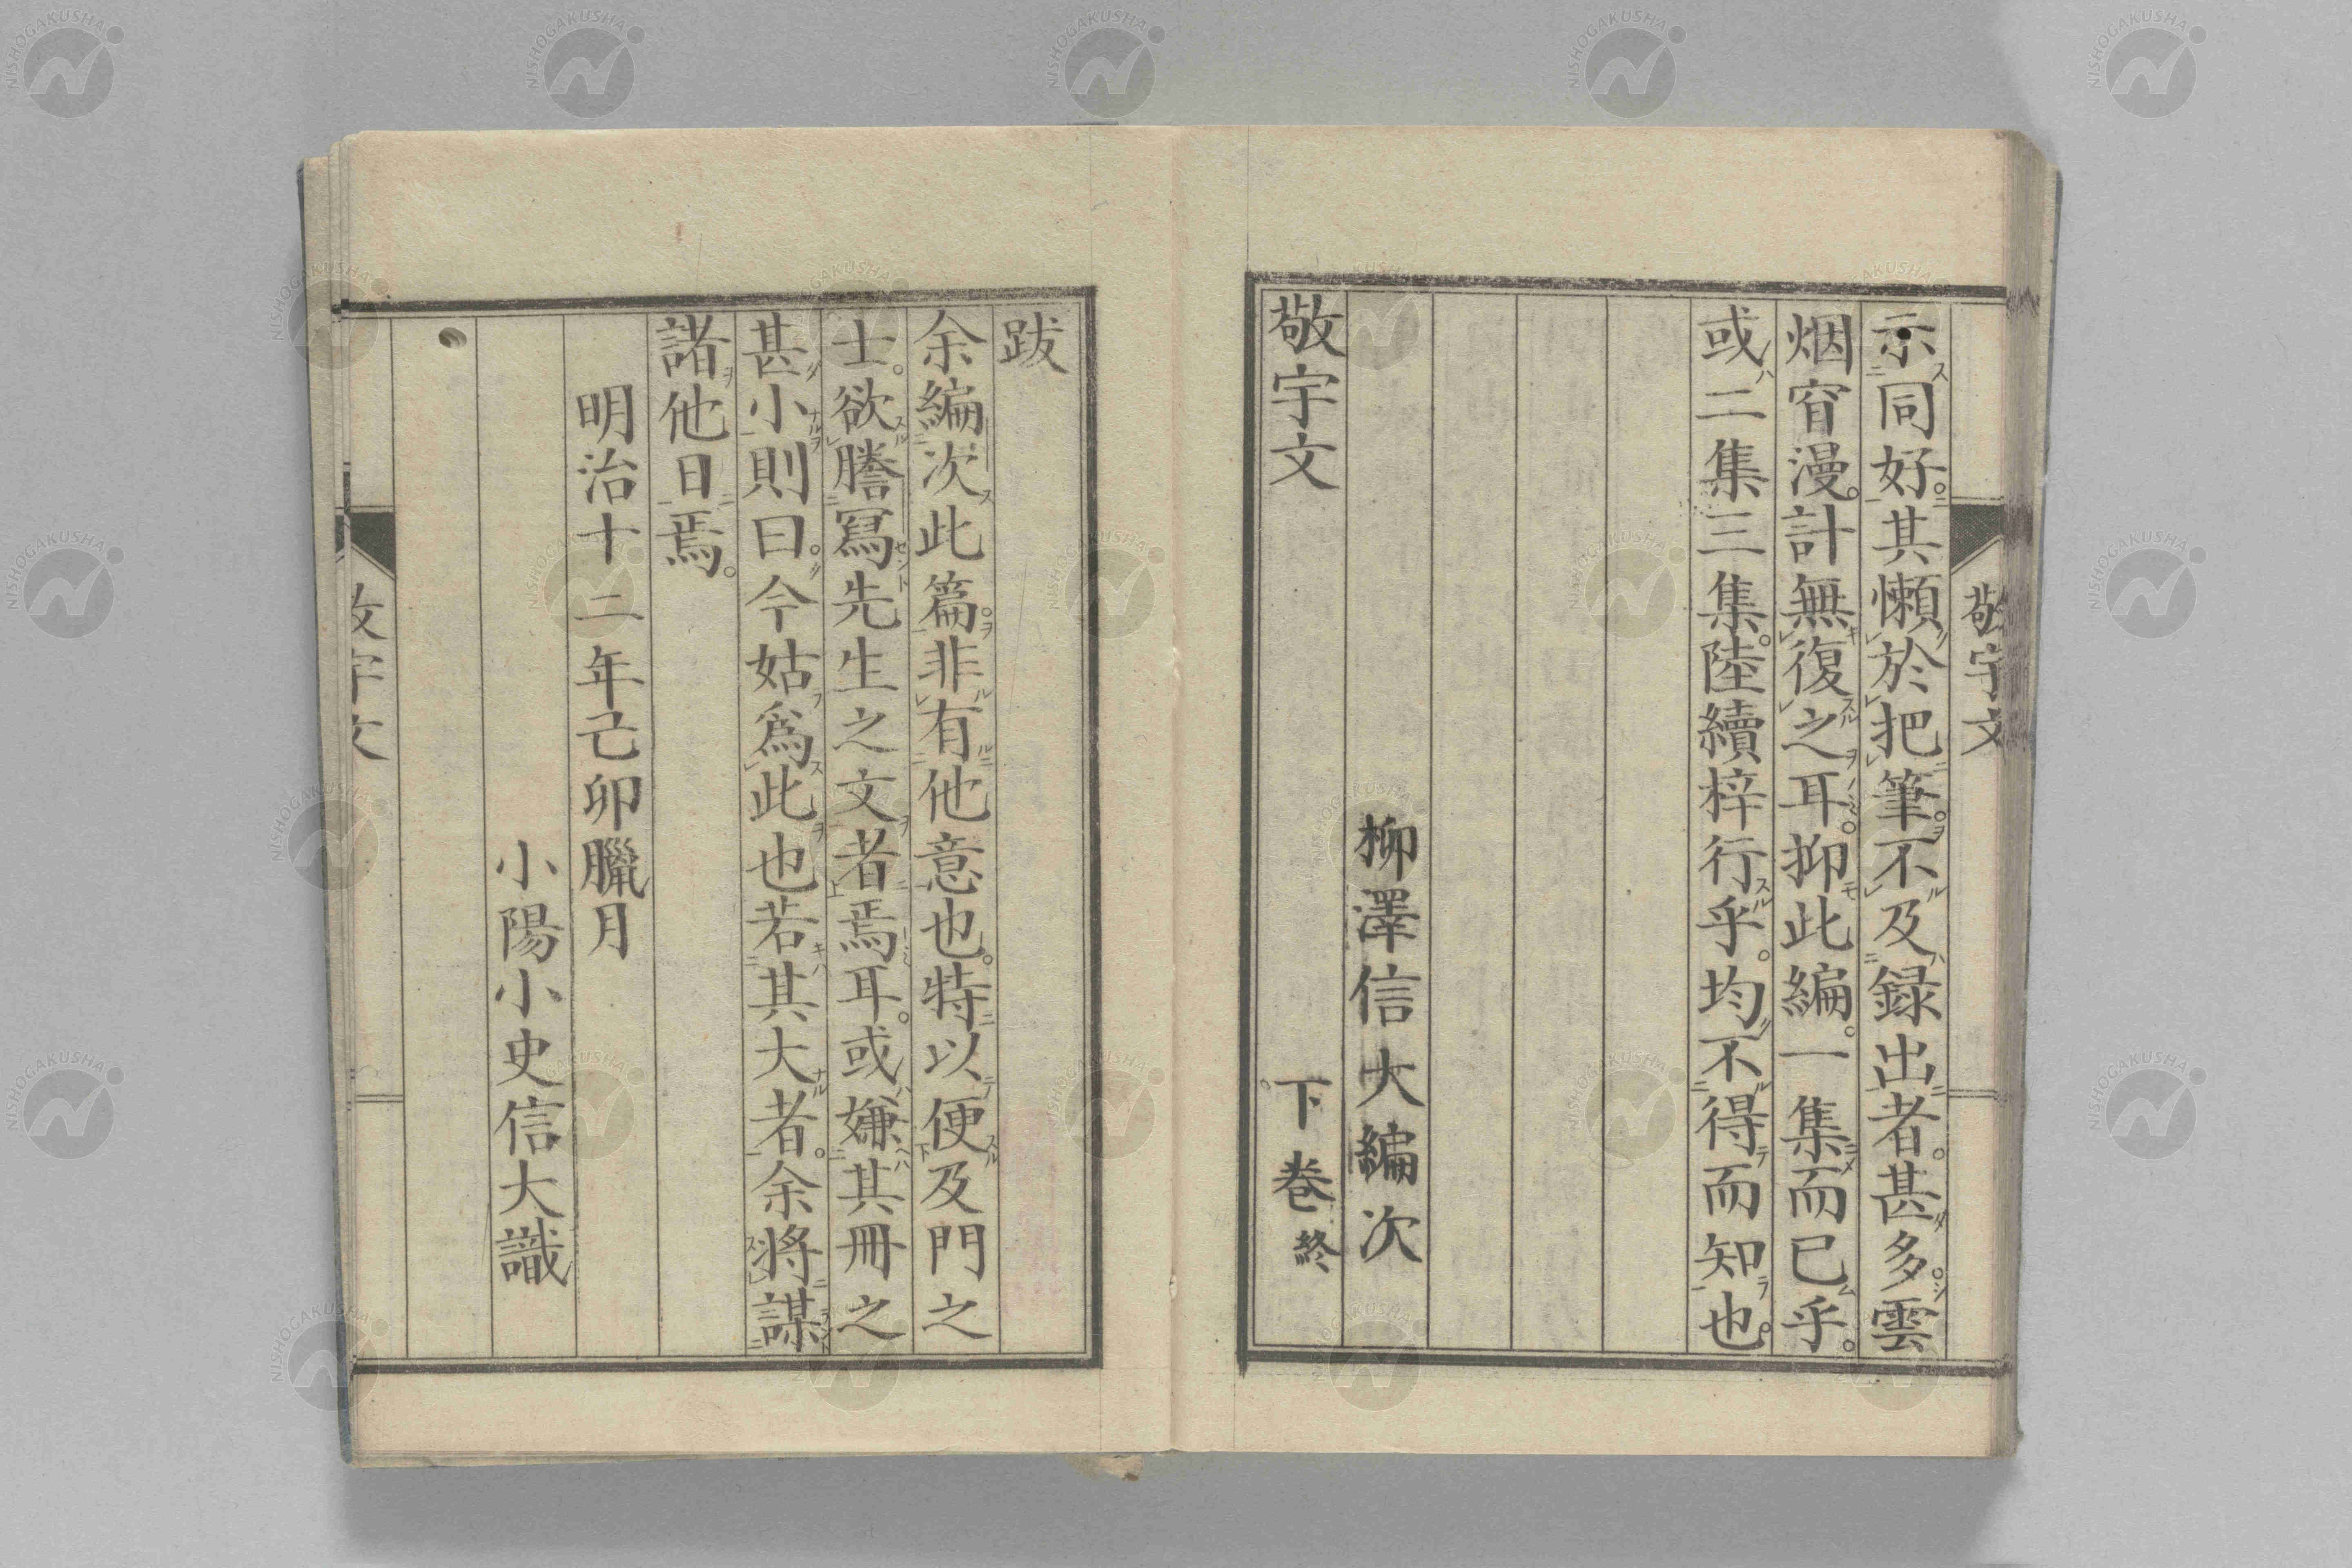 敬宇文
示同好。其懶於把筆。不及録出者。甚多。雲
烟窅漫。計無復之耳。抑此編。一集而已乎。
或二集三集。陸續梓行乎。均不得而知也。
柳澤信大編次
敬宇文 下卷終
跋
余編次此篇。非有他意也。特以便及門之
士。欲謄寫先生之文者焉耳。或嫌其冊之
甚小則曰。今姑爲此也若其大者。余將謀
諸他日焉。
明治十二年己卯臘月
小陽小史信大識
敬宇文
NISHOGAKUSHA